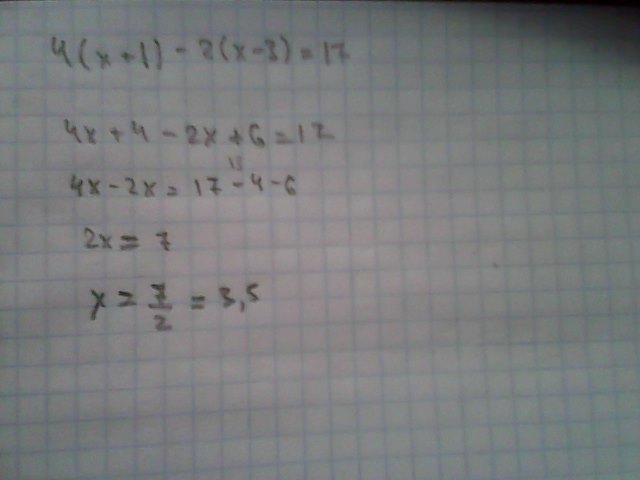 4(x+1)-2(x-3)=17
4x+4-2x+6=17
13
4x-2x=17-4-6
2x=7
x=7/2=3,5